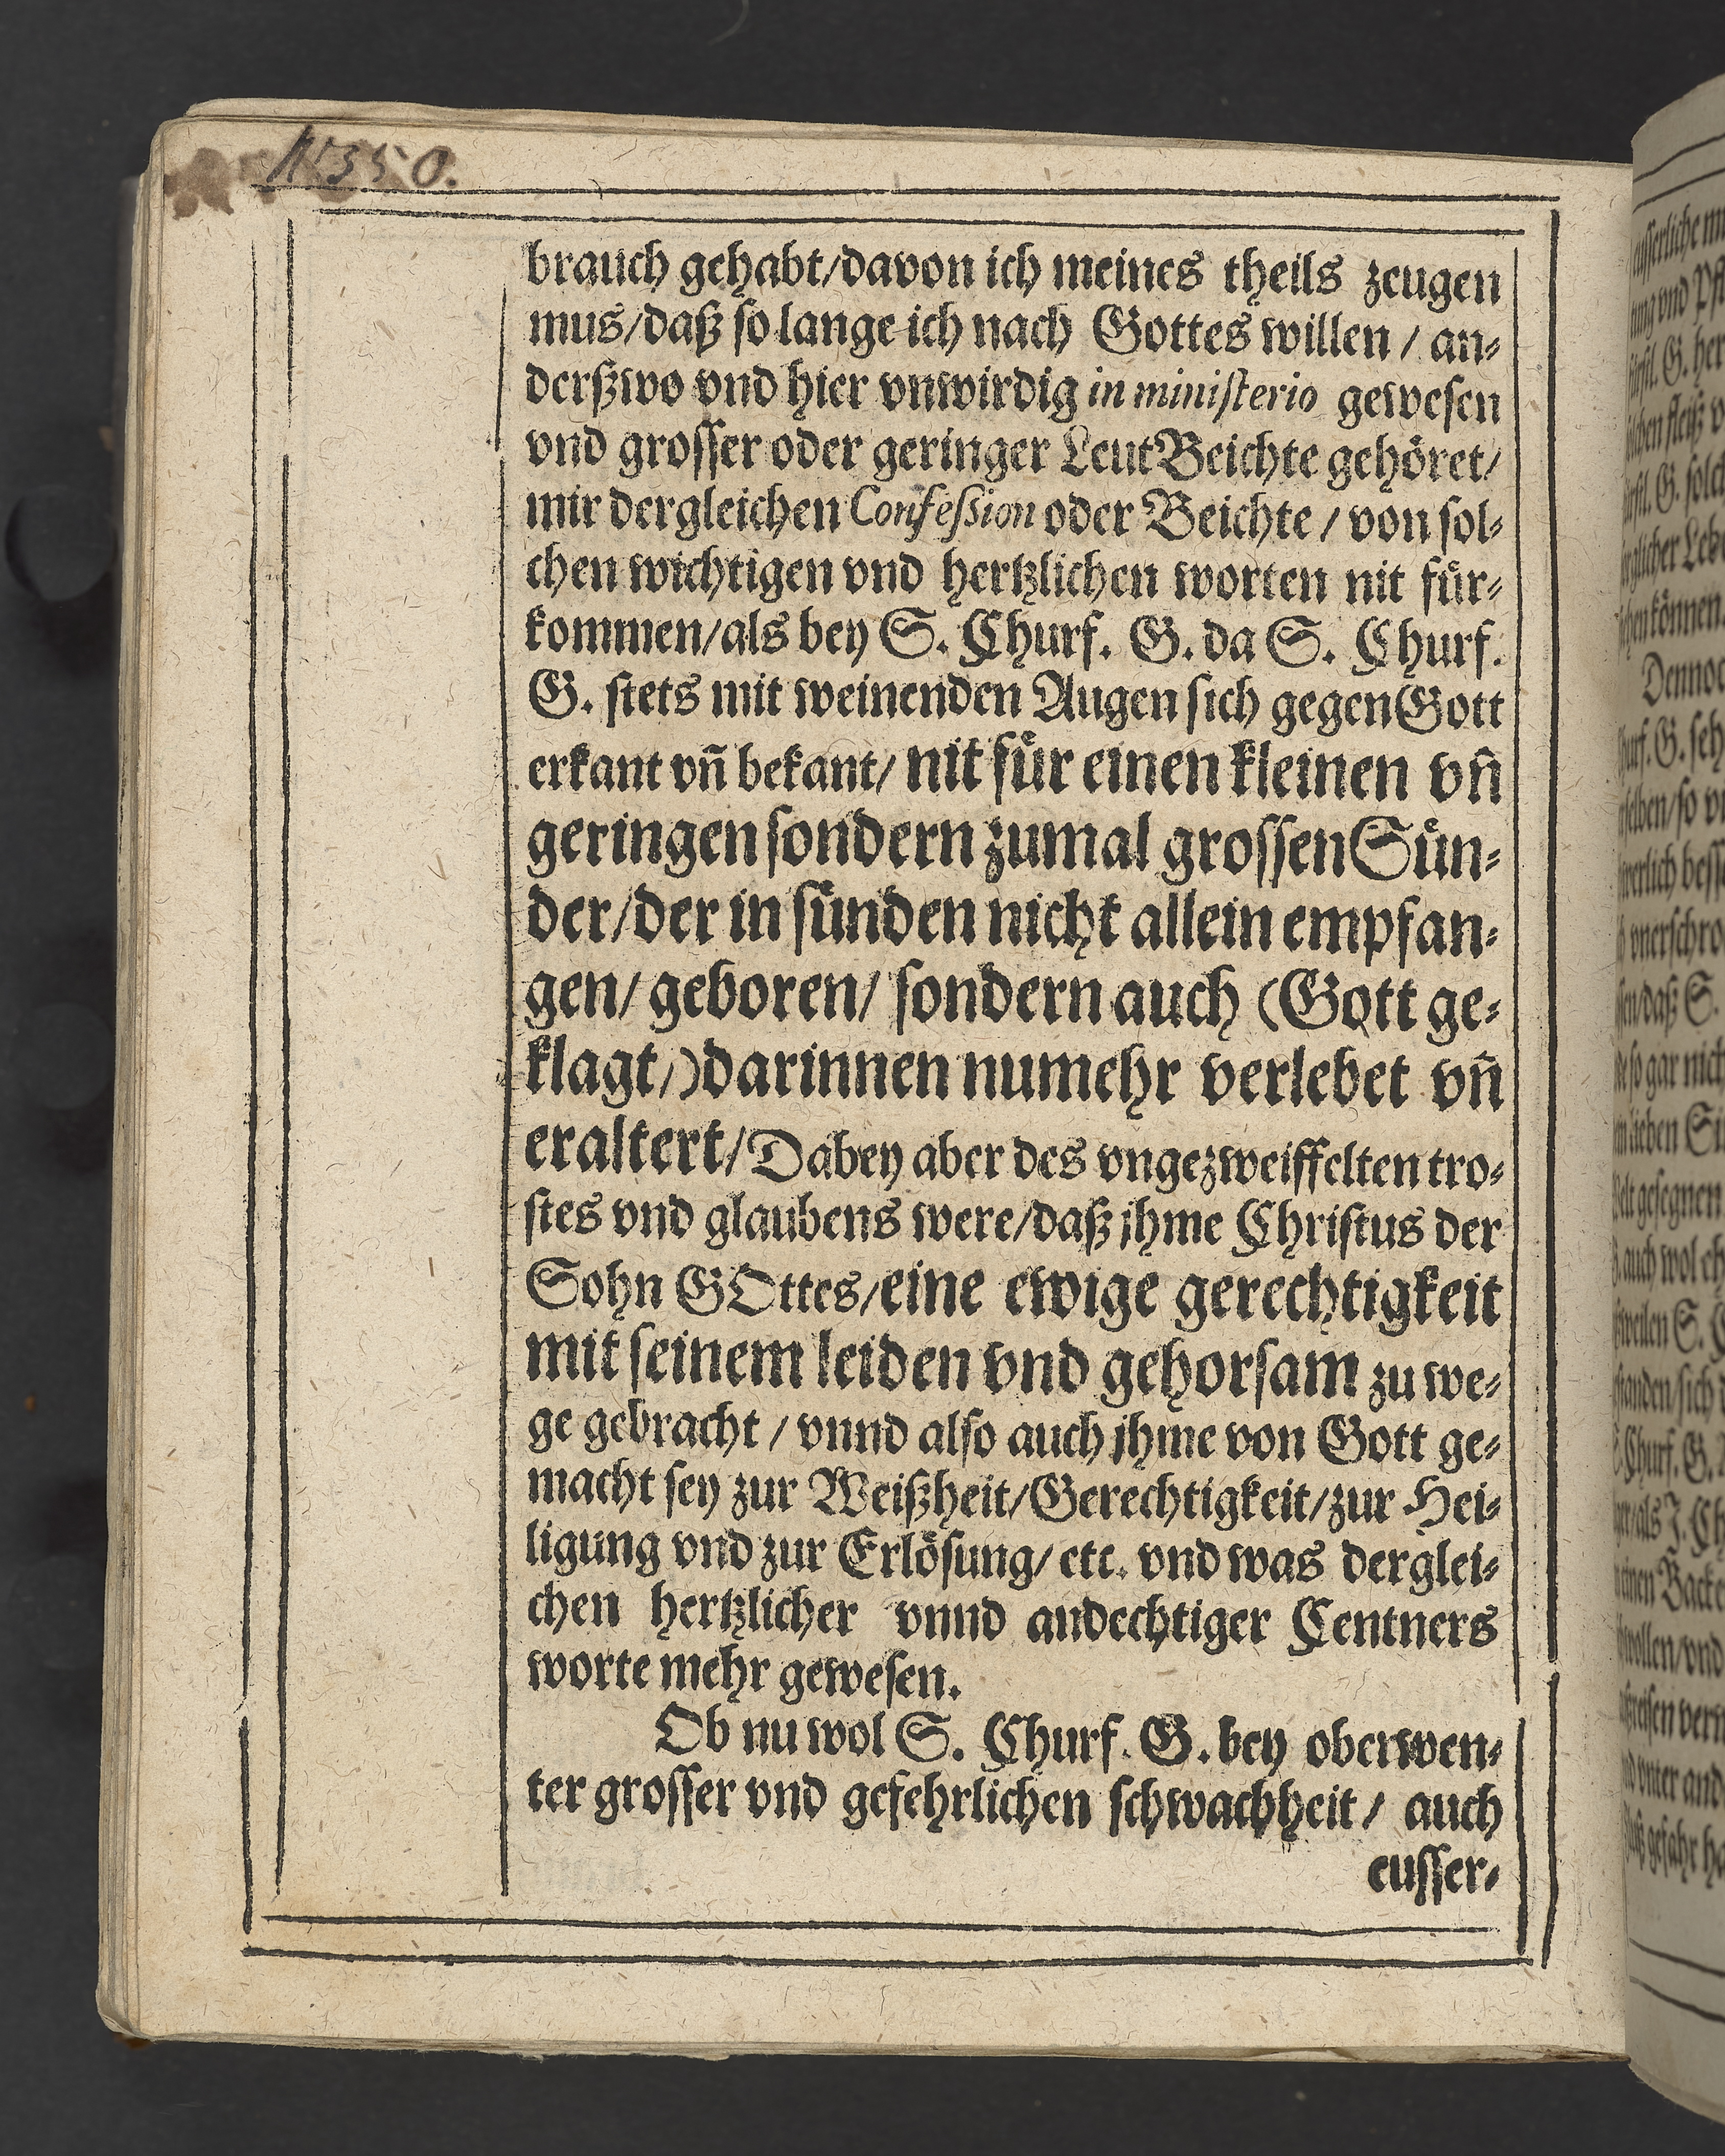 N.350.
brauch gehabt/davon ich meines theils zeugen
mus/daß so lange ich nach Gottes willen / an-
derßwo vnd hier vnwirdig in ministerio gewesen
vnd grosser oder geringer Leut Beichte gehöret/
mir dergleichen Confession oder Beichte / von sol-
chen wichtigen vnd hertzlichen worten nit für-
kommen/als bey S. Churf. G. da S. Churf.
G. stets mit weinenden Augen sich gegen Gott
erkant vñ bekant/ nit für einen kleinen vñ
geringen sondern zumal grossen Sün-
der/der in sünden nicht allein empfan-
gen/ geboren/ sondern auch (Gott ge-
klagt/) darinnen numehr verlebet vñ
eraltert/ Dabey aber des vngezweiffelten tro-
stes vnd glaubens were/daß jhme Christus der
Sohn GOttes/eine ewige gerechtigkeit
mit seinem leiden vnd gehorsam zu we-
ge gebracht / vnnd also auch jhme von Gott ge-
macht sey zur Weißheit/Gerechtigkeit/zur Hei-
ligung vnd zur Erlösung/ etc. vnd was derglei-
chen hertzlicher vnnd andechtiger Centners
worte mehr gewesen.
Ob nu wol S. Churf. G. bey oberwen-
ter grosser vnd gefehrlichen schwachheit / auch
eusser-
eusserliche
vnd
G.
G. solch
können
Dennoc
G.
so
vnerschro
daß S.
so gar nich
gesegnen
auch wol
S.
sich
Churf. G.
als J. Ch
vnd
vnter and
gefahr